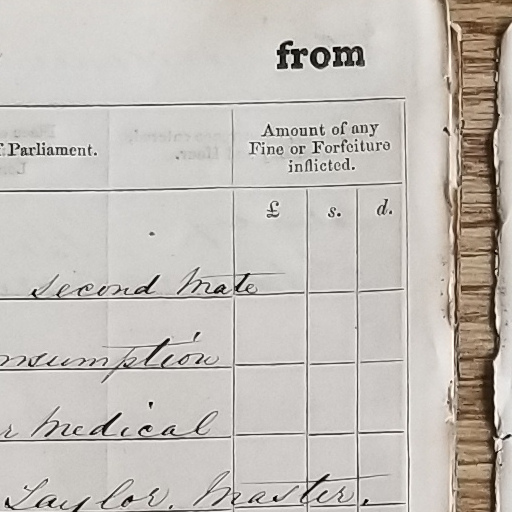 from
Parliament.
Amount of any
Fine or Forfeiture
inflicted.
£ s. d.
Second Mate
nsumption
r Medical
Taylor. Master.